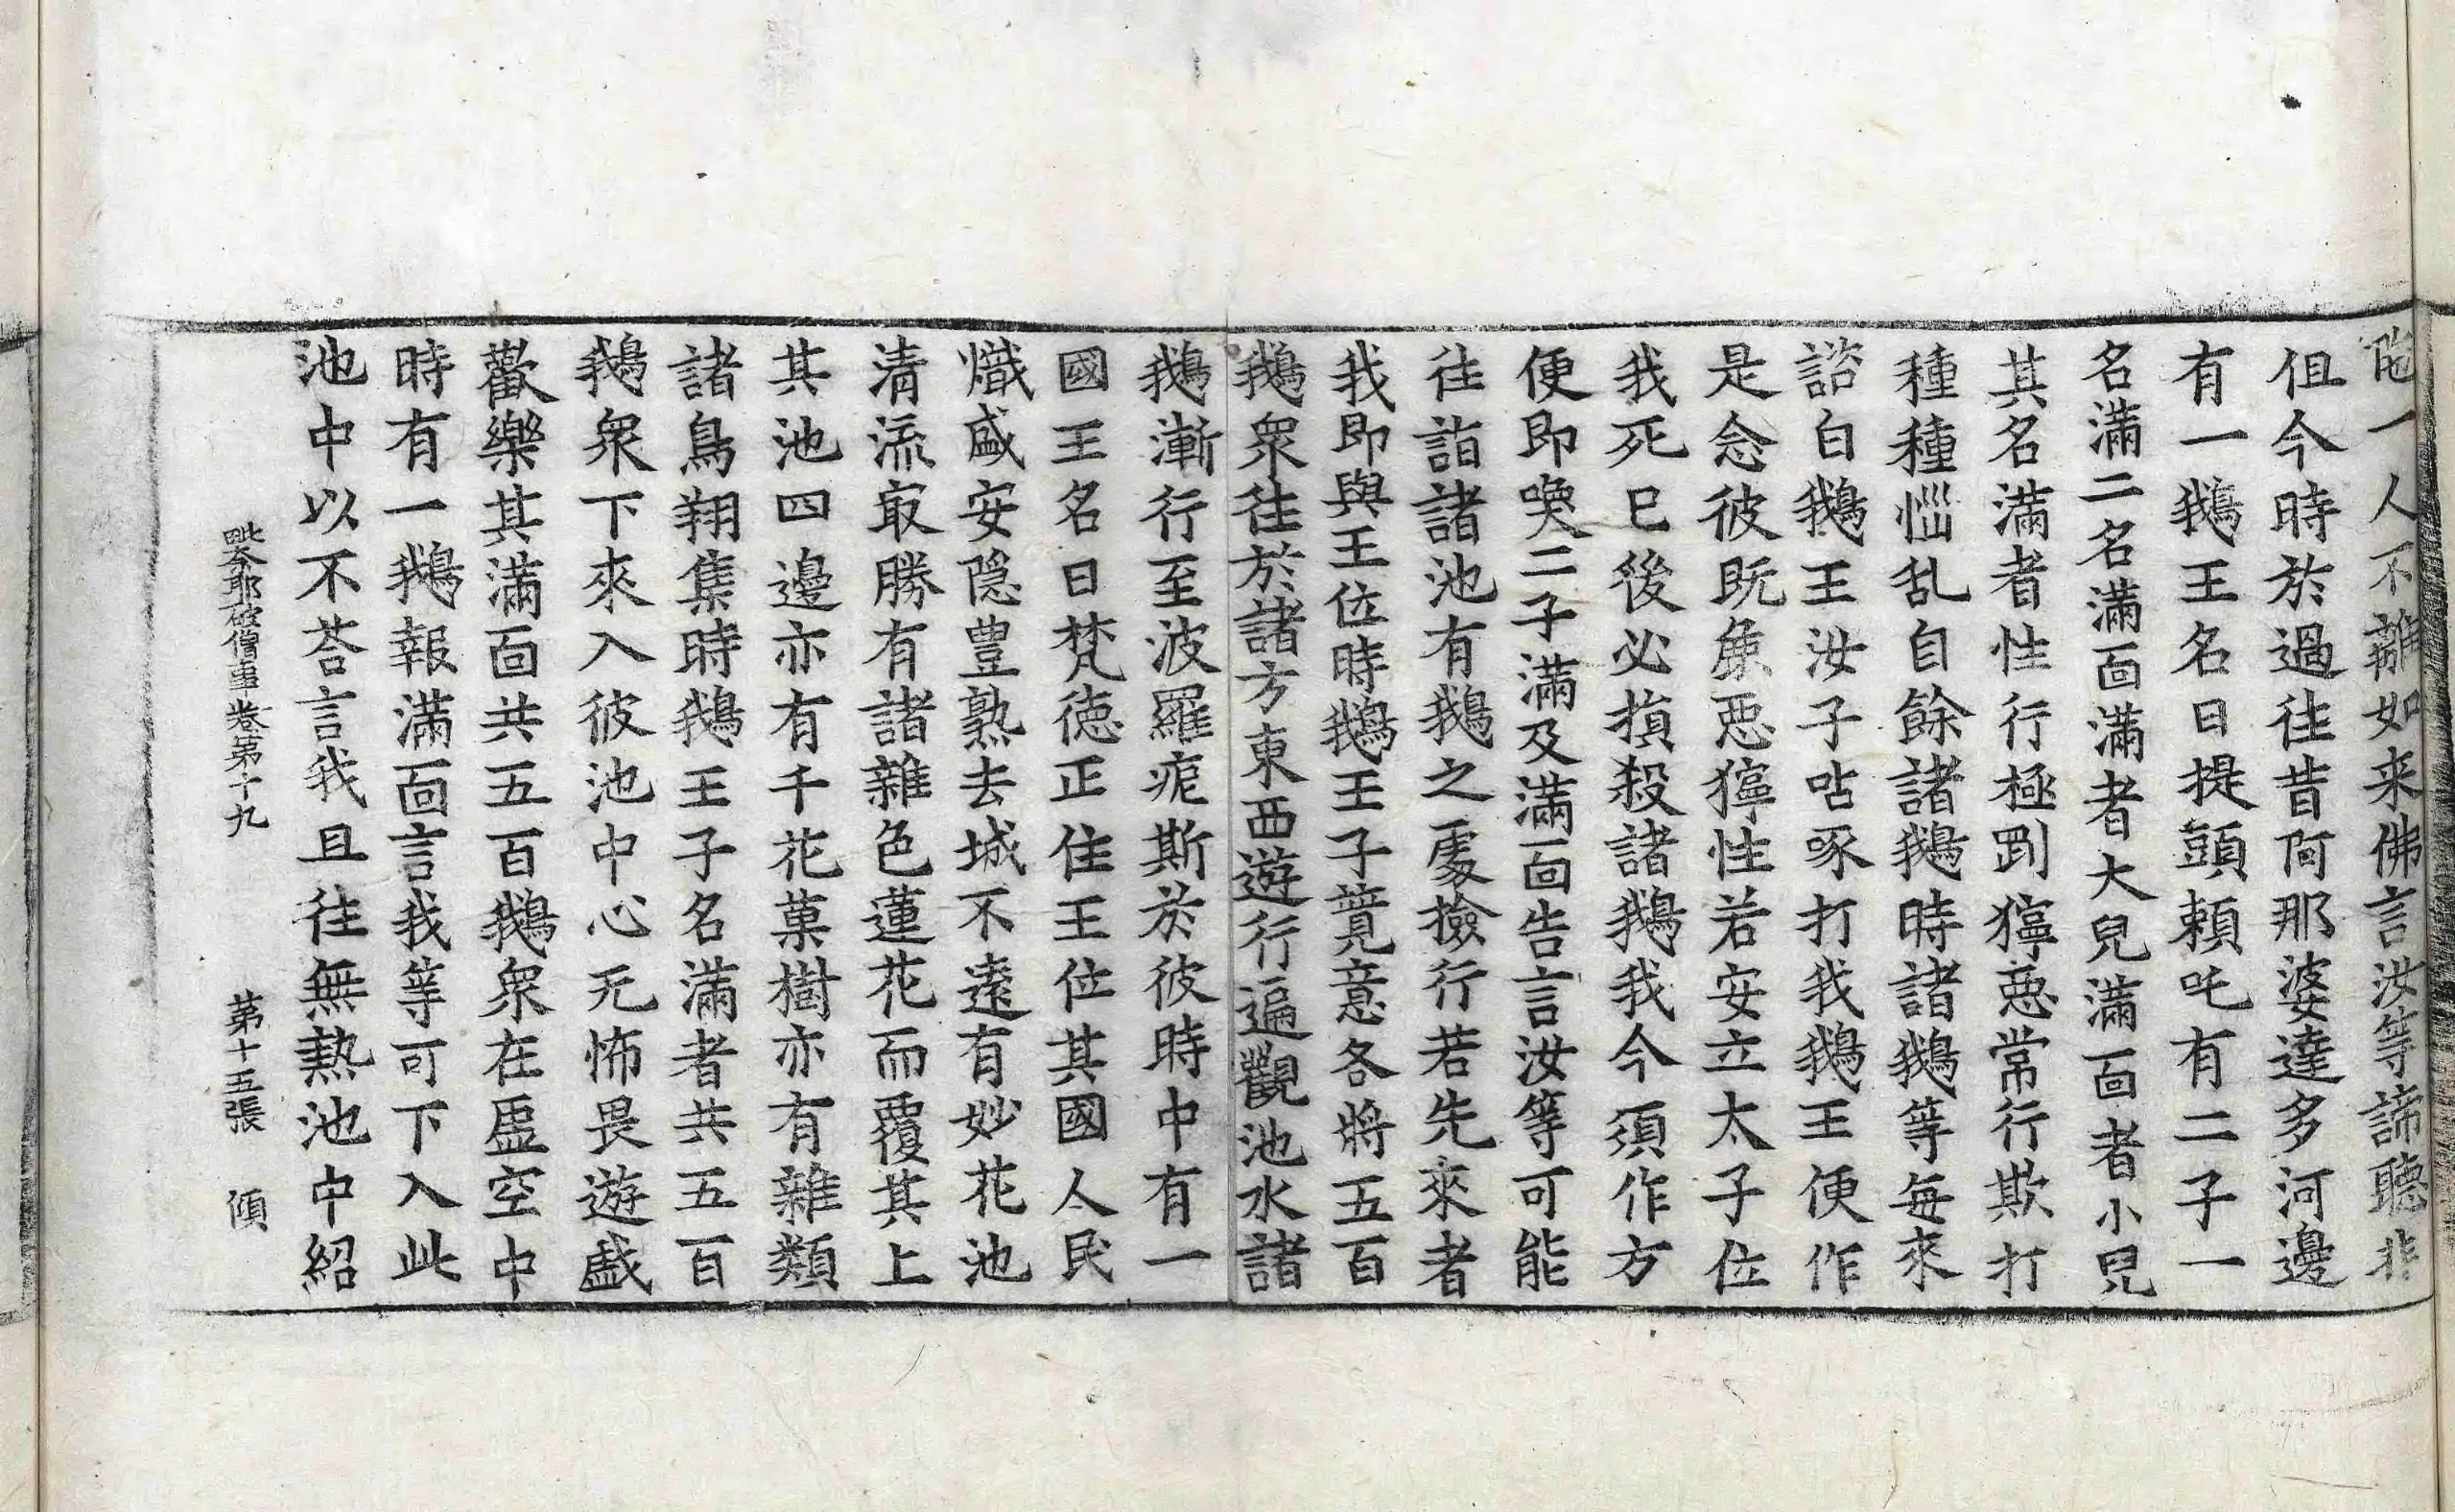 陁一人不離如来佛言汝等諦聽非
但今時於過往昔阿那婆達多河邊
有一鵝王名曰提頭頼吒有二子一
名滿二名滿面滿者大兒滿面者小兒
其名滿者性行極剛獰惡常行欺打
種種惱乱自餘諸鵝時諸鵝等每來
諮白鵝王汝子呫啄打我鵝王便作
是念彼既麁惡獰性若安立太子位
我死已後必損殺諸鵝我今須作方
便即喚二子滿及滿面告言汝等可能
往詣諸池有鵝之處撿行若先來者
我即與王位時鵝王子競意各將五百
鵝衆往於諸方東西遊行遍觀池水諸
鵝漸行至波羅痆斯於彼時中有一
國王名曰梵德正住王位其國人民
熾盛安隱豊熟去城不遠有妙花池
清流㝡勝有諸雜色蓮花而覆其上
其池四邊亦有千花菓樹亦有雜類
諸鳥翔集時鵝王子名滿者共五百
鵝衆下來入彼池中心无怖畏遊戱
歡樂其滿面共五百鵝衆在虛空中
時有一鵝報滿面言我等可下入此
池中以不荅言我且往無熱池中紹
毗奈耶破僧事卷第十九 第十五張 傾